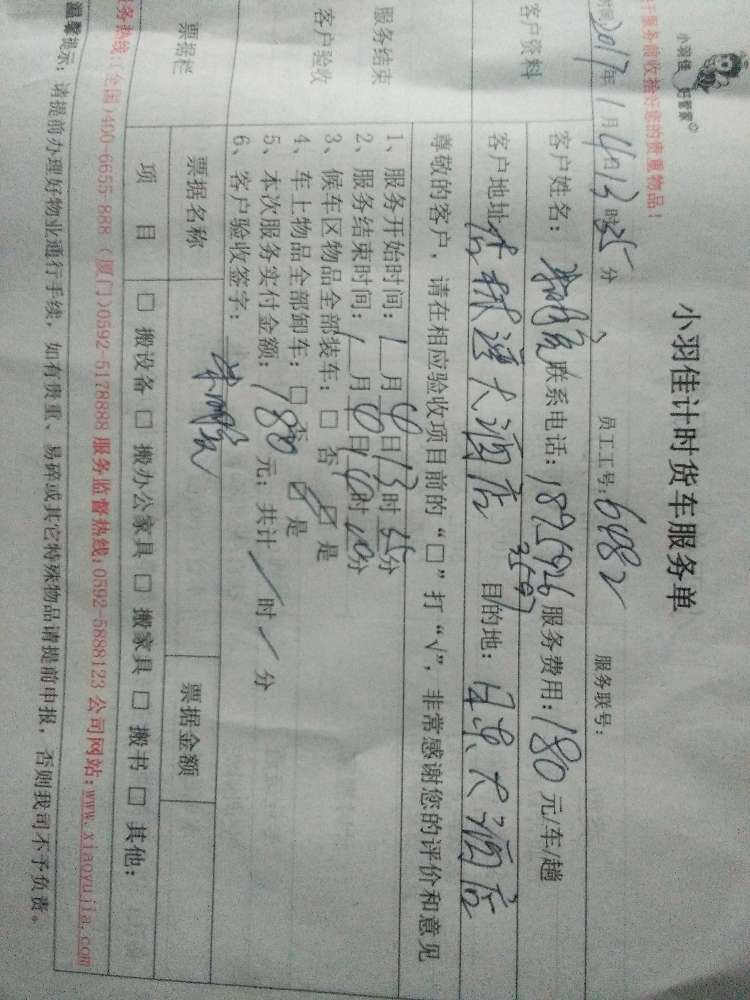 小羽佳 好管家
小羽佳计时货车服务单
于服务前收拾好您的贵重物品！
时间2017年1月4日13时35分 员工工号：6482 服务联号：
客户资料
客户姓名： 联系电话：18259263597 服务费用：180元/车/趟
客户地址： 大酒店 目的地：日东大酒店
尊敬的客户，请在相应验收项目前的“□”打“√”，非常感谢您的评价和意见
服务结束
客户验收
1、服务开始时间：1月4日13时35分
2、服务结束时间：1月4日14时20分
3、候车区物品全部装车：□ 否 ☑ 是
4、车上物品全部卸车：□ 否 ☑ 是
5、本次服务实付金额：180元；共计 / 时 / 分
6、客户验收签字：
票据栏
票据名称 票据金额
项目 □ 搬设备 □ 搬办公家具 □ 搬家具 □ 搬书 □ 其他：
务热线：(全国)400-6655-888 (厦门)0592-5178888 服务监督热线：0592-5888123 公司网站：www.xiaoyujia.com
温馨提示：请提前办理好物业通行手续，如有贵重、易碎或其它特殊物品请提前申报，否则我司不予负责。